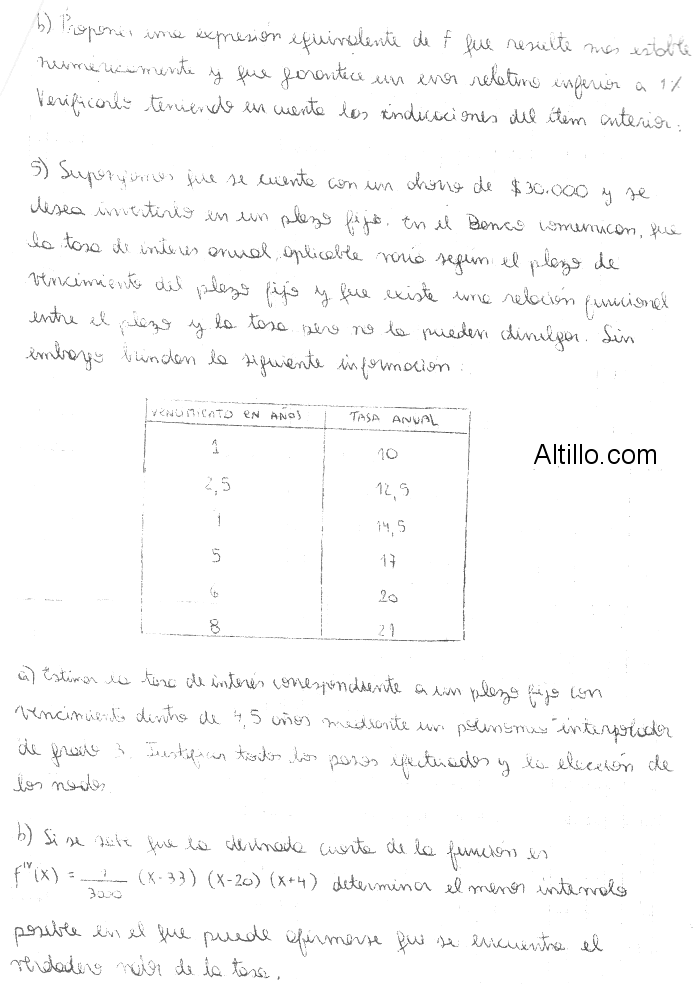 b) Proponer una expresión equivalente de f que resulte mas estable
numéricamente y que garantice un error relativo inferior a 1%
Verificarlo teniendo en cuenta las indicaciones del ítem anterior.
5) Supongamos que se cuenta con un ahorro de $30.000 y se
desea invertirlo en un plazo fijo. En el Banco comunican, que
la tasa de interes anual aplicable varia segun el plazo de
vencimiento del plazo fijo y que existe una relación funcional
entre el plazo y la tasa pero no la pueden divulgar. Sin
embargo brindan la siguiente informacion:
VENCIMIENTO EN AÑOS TASA ANUAL
1 10
2,5 12,5
1 14,5
5 17
6 20
8 21
Altillo.com
a) Estimar la tasa de interés correspondiente a un plazo fijo con
vencimiento dentro de 4,5 años mediante un polinomio interpolador
de grado 3. Justificar todos los pasos efectuados y la elección de
los nodos
b) Si se sabe que la derivada cuarta de la función es
f^IV(x) = 1/3000 (x-33) (x-20) (x+4) determinar el menor intervalo
posible en el que puede afirmarse que se encuentra el
verdadero valor de la tasa.